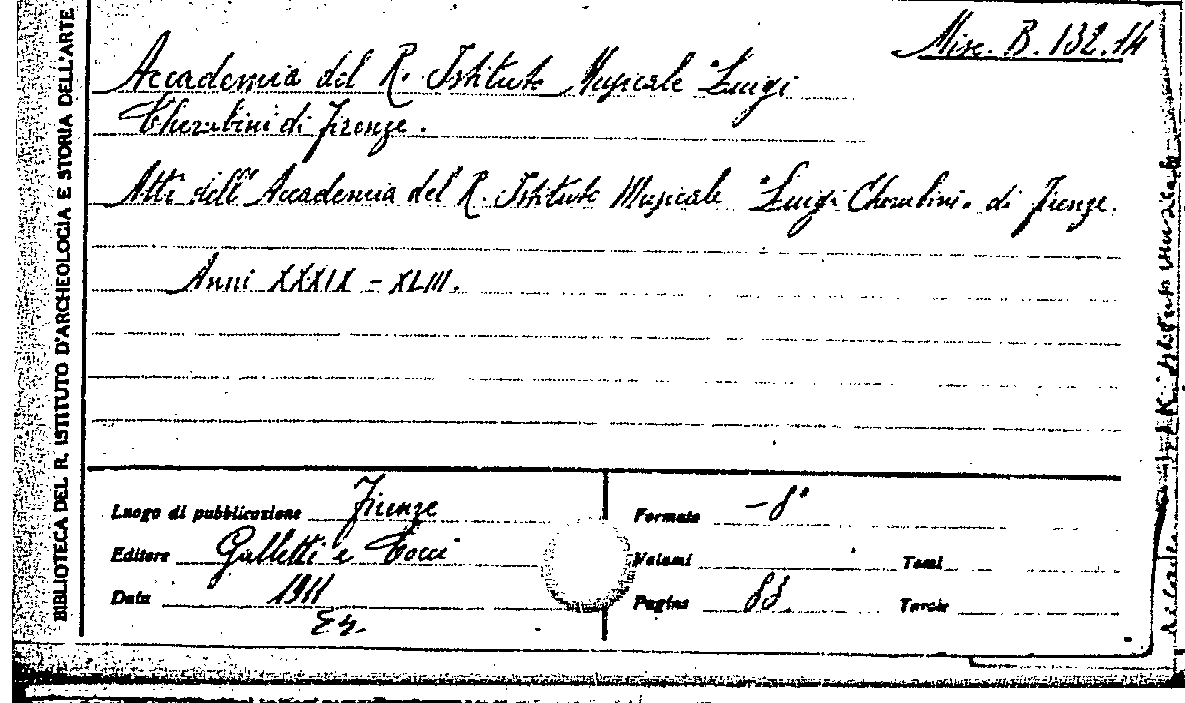 Misc. B. 132.14
Accademia del R. Istituto Musicale "Luigi
Cherubini di Firenze.
Atti dell'Accademia del R. Istituto Musicale "Luigi Cherubini" di Firenze.
Anni XXXIX - XLIII.
Luogo di pubblicazione Firenze
Editore Galletti e Cocci
Data 1911
Formato -8°
Volumi
Tomi
Pagine 83.
Tavole
BIBLIOTECA DEL R. ISTITUTO D'ARCHEOLOGIA E STORIA DELL'ARTE